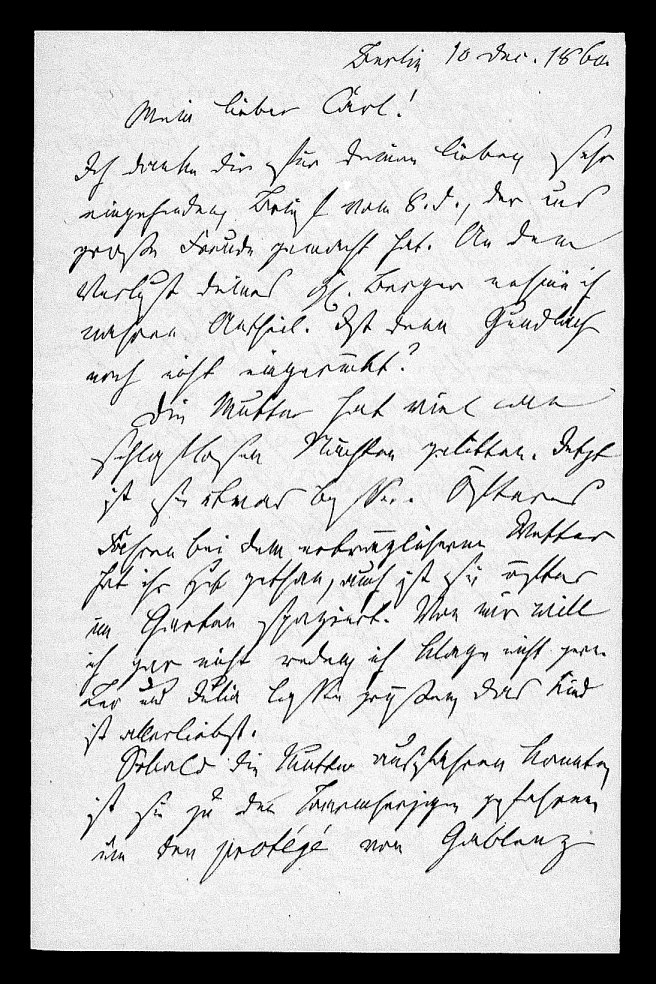 Berlin 10 Dec. 1860.
Mein lieber Carl!
Ich danke dir für deinen lieben sehr
eingehenden Brief vom 8. d., der uns
große Freude gemacht hat. An dem
Verlust deines Berger nehme ich
wahren Antheil. Ist denn Gundlach
noch nicht eingerückt?
Die Mutter hat viel an
schlaflosen Nächten gelitten. Jetzt
ist sie etwas besser. Öfteres
Fahren bei dem erträglicheren Wetter
hat ihr gut gethan, auch ist sie öfter
im Garten spaziert. Von mir will
ich gar nicht reden, ich klage nicht gern.
Leo und Julia lassen grüßen, das Kind
ist allerliebst.
Sobald die Mutter ausfahren konnte,
ist sie zu den Barmherzigen gefahren
um den protégé von Gablenz